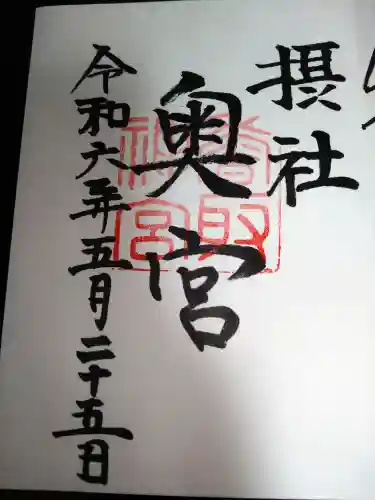 摂社
奥宮
令和六年五月二十五日